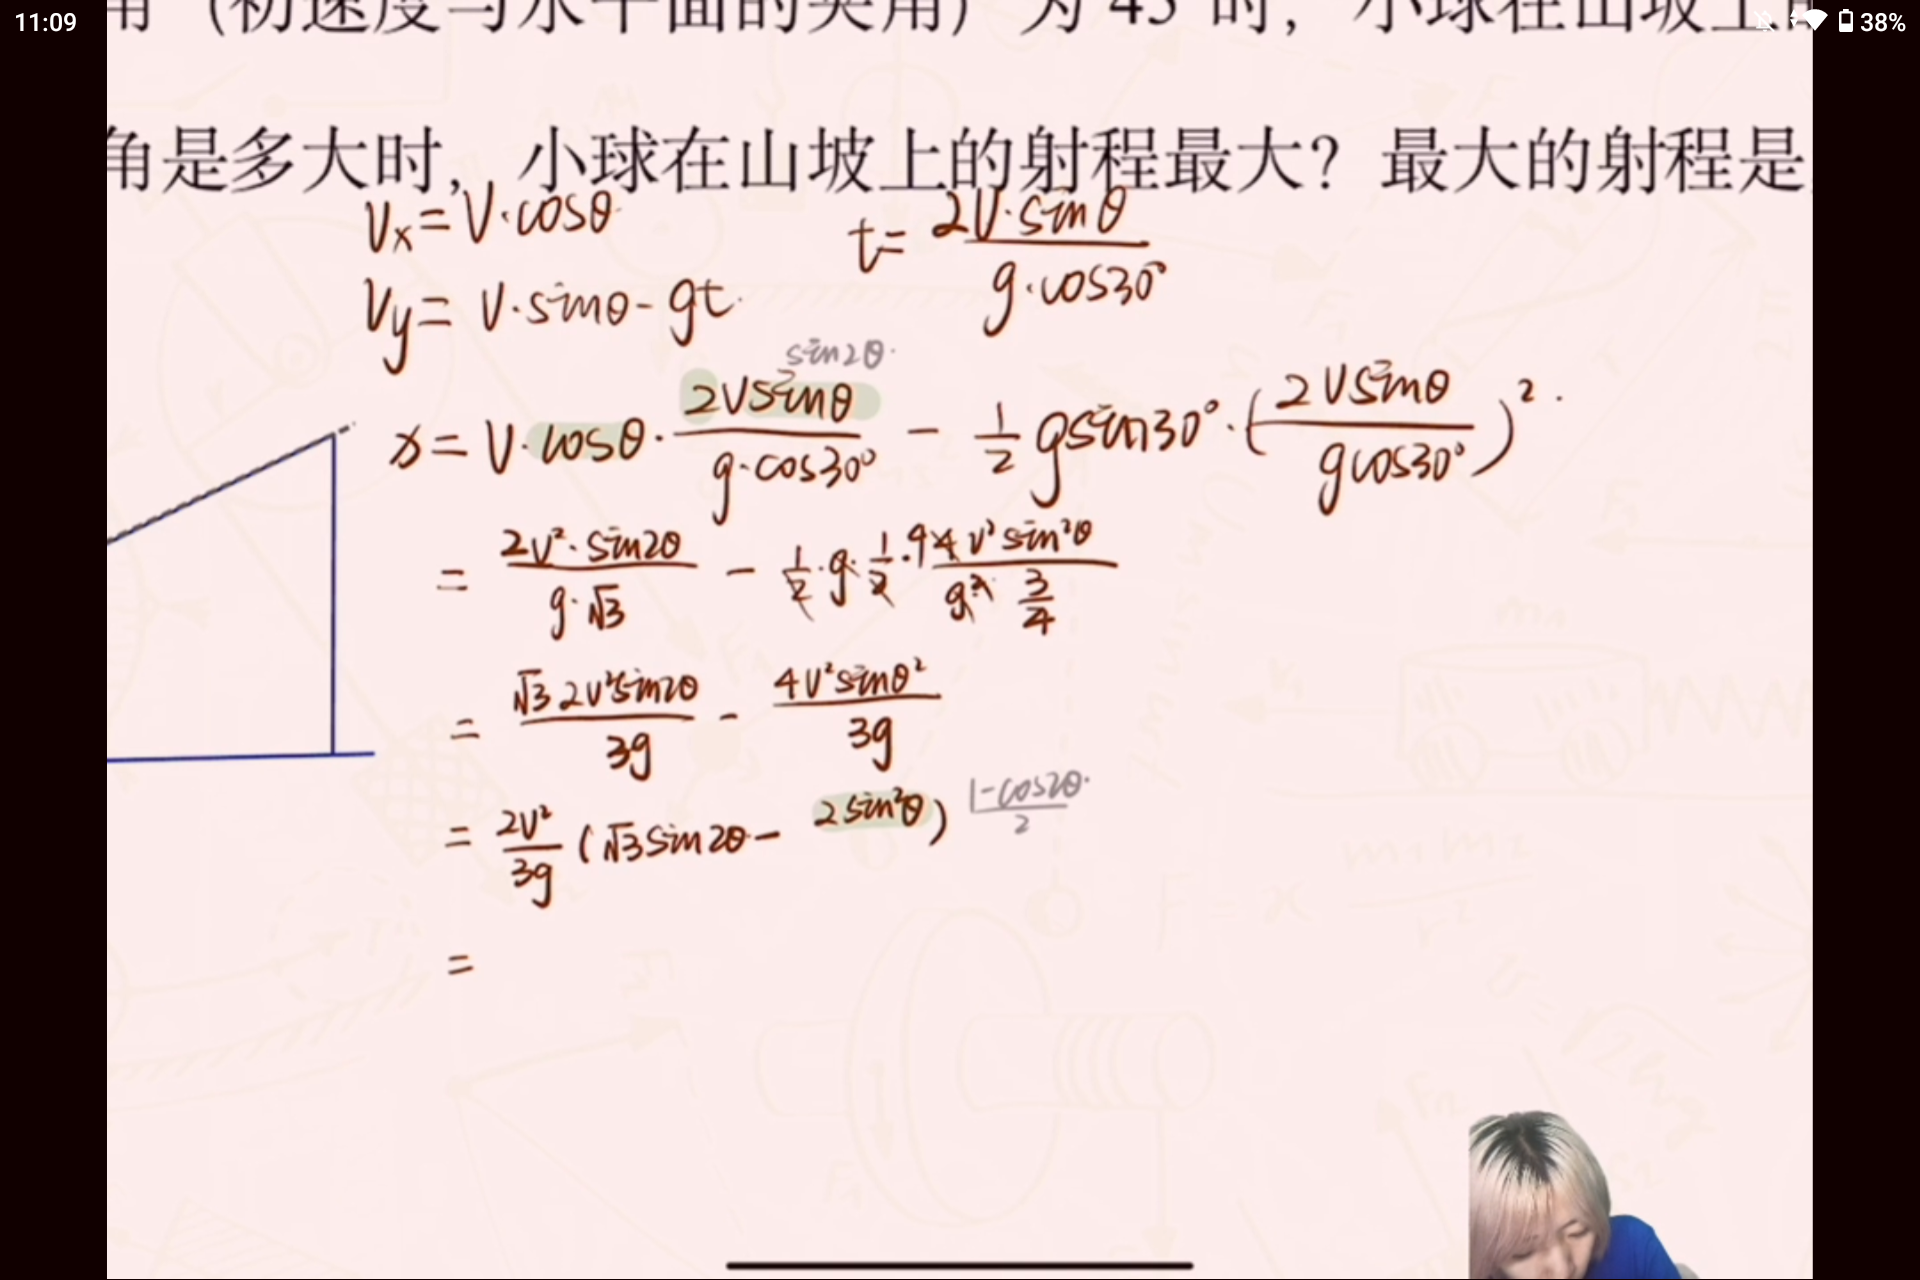 11:09 38%
角（初速度与水平面的夹角）为 45°时，小球在山坡上
角是多大时，小球在山坡上的射程最大？最大的射程是
Vx = V·cosθ
t = 2V·sinθ / g·cos30°
Vy = V·sinθ - gt
sin2θ
x = V·cosθ · 2Vsinθ / g·cos30° - 1/2 gsin30° · (2Vsinθ / gcos30°)²
= 2V²·sin2θ / g·√3 - 1/2·g·1/2· 4V²sin²θ / g²·3/4
= √3 2V²sin2θ / 3g - 4V²sinθ² / 3g
= 2V²/3g (√3sin2θ - 2sin²θ) 1-cos2θ / 2
=